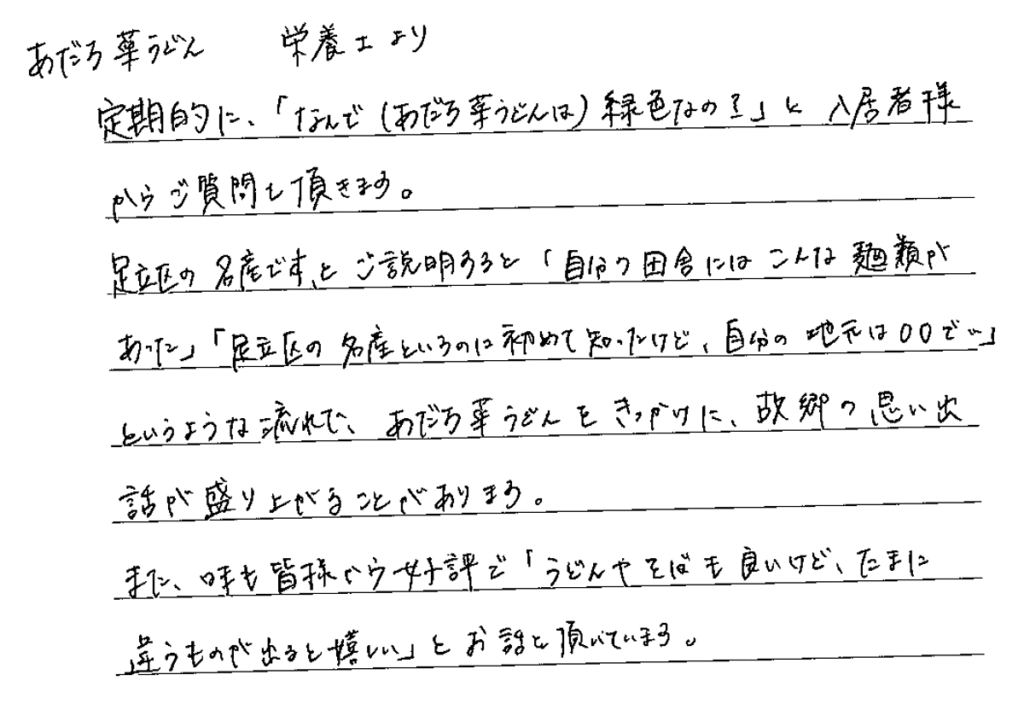 あだち菜うどん 栄養士より
定期的に、「なんで(あだち菜うどんは)緑色なの?」と入居者様
からご質問を頂きます。
足立区の名産です、とご説明すると「自分の田舎にはこんな麺類が
あった」「足立区の名産というのは初めて知ったけど、自分の地元は〇〇で…」
というような流れで、あだち菜うどんをきっかけに、故郷の思い出
話が盛り上がることがあります。
また、味も皆様から好評で「うどんやそばも良いけど、たまに
違うものが出ると嬉しい」とお話を頂いています。